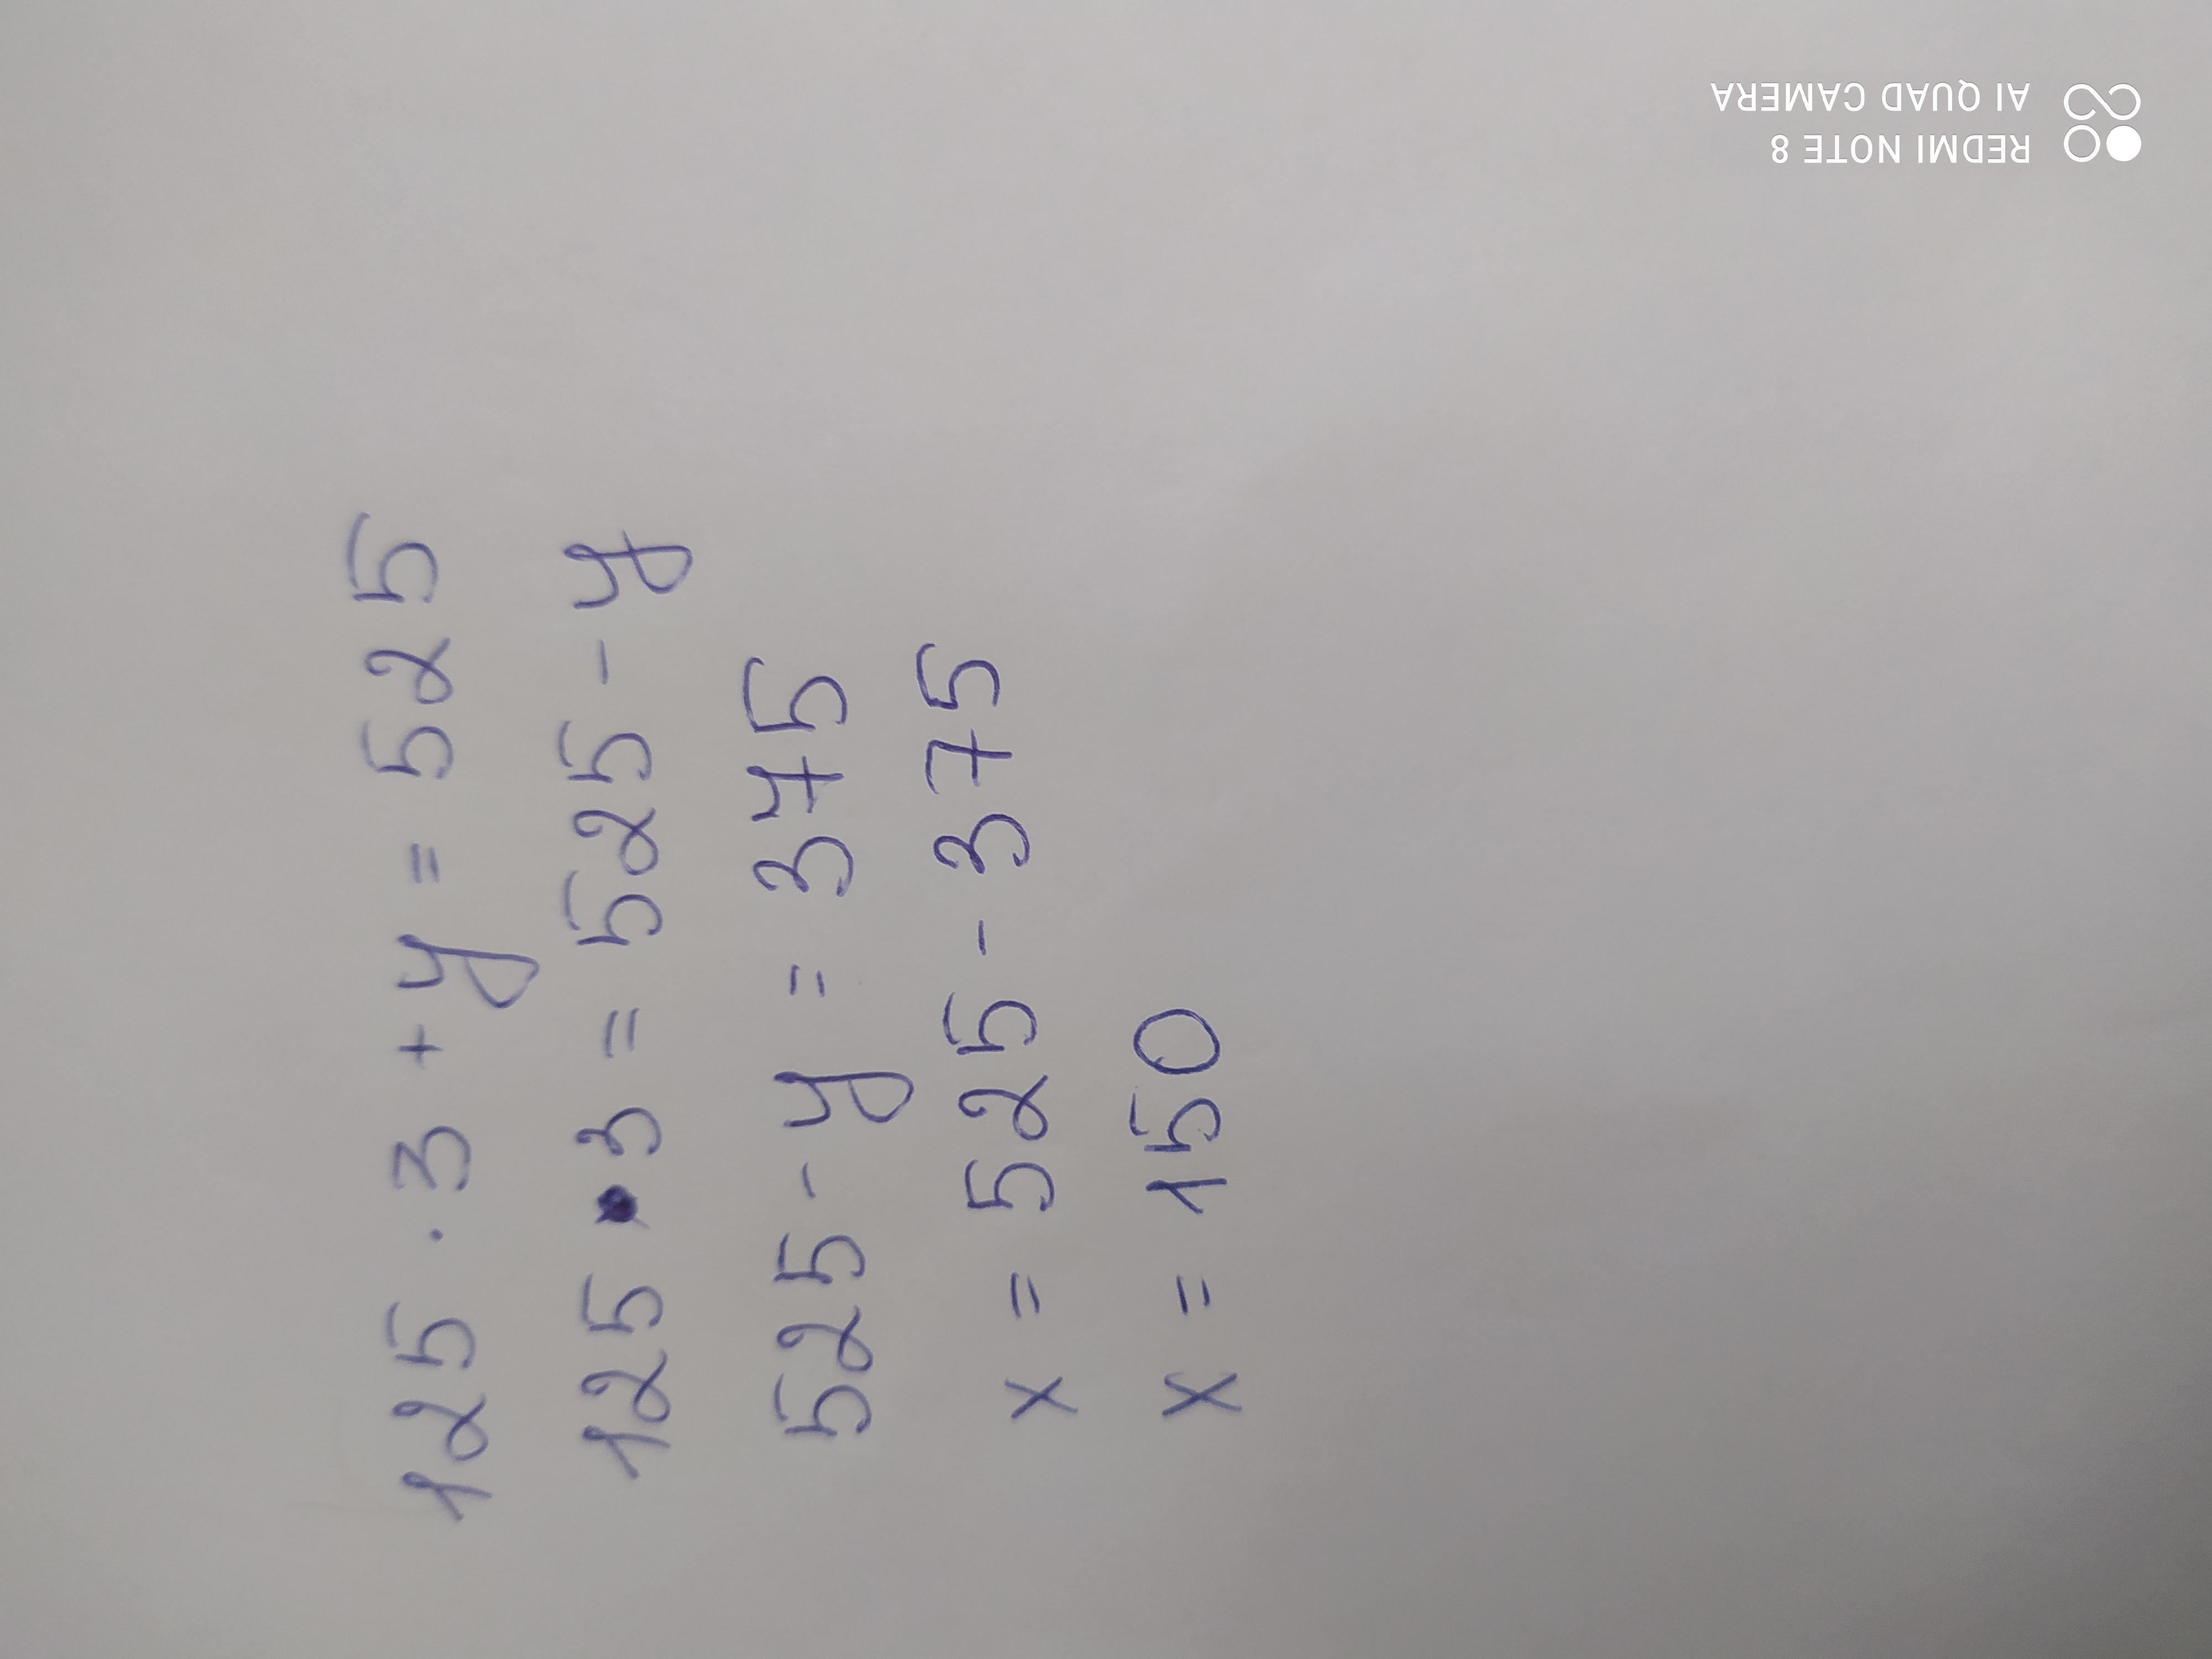 125 · 3 + y = 525
125 · 3 = 525 - y
525 - y = 375
x = 525 - 375
x = 150
REDMI NOTE 8
AI QUAD CAMERA